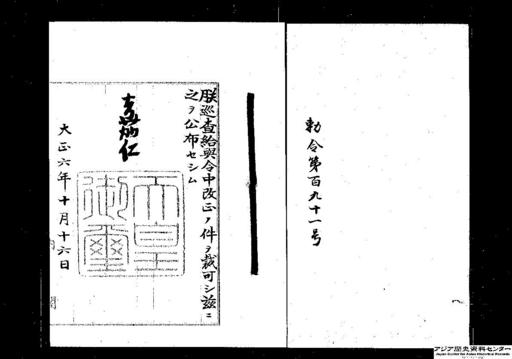 勅令第百九十一号
朕巡査給與令中改正ノ件ヲ裁可シ茲ニ
之ヲ公布セシム
嘉仁
天皇
御璽
大正六年十月十六日
内閣
アジア歴史資料センター
Japan Center for Asian Historical Records